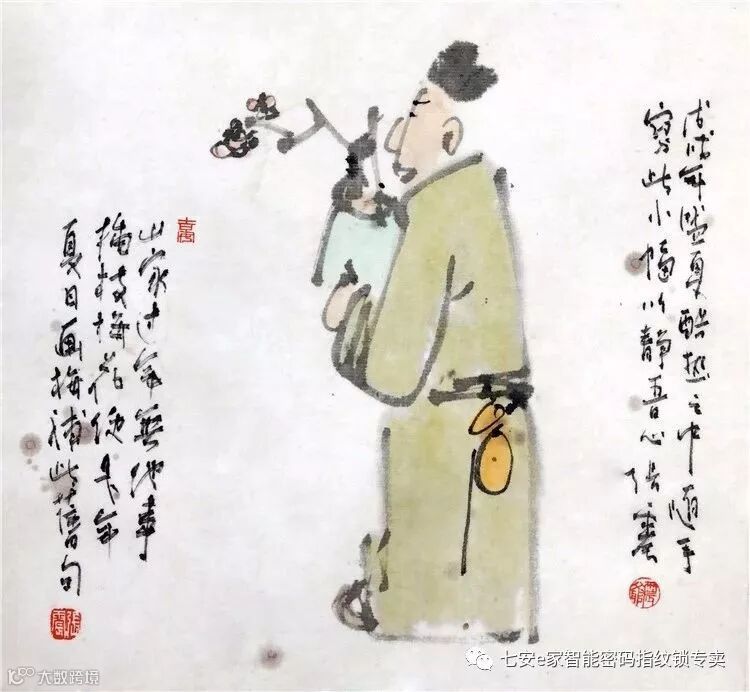 戊戌年盛夏酷热之中随手
寫此小幅以静吾心 张
山家过年無他事
插枝梅花便是年
夏日画梅補此舊句
七安e家智能密码指纹锁专卖
大数跨境